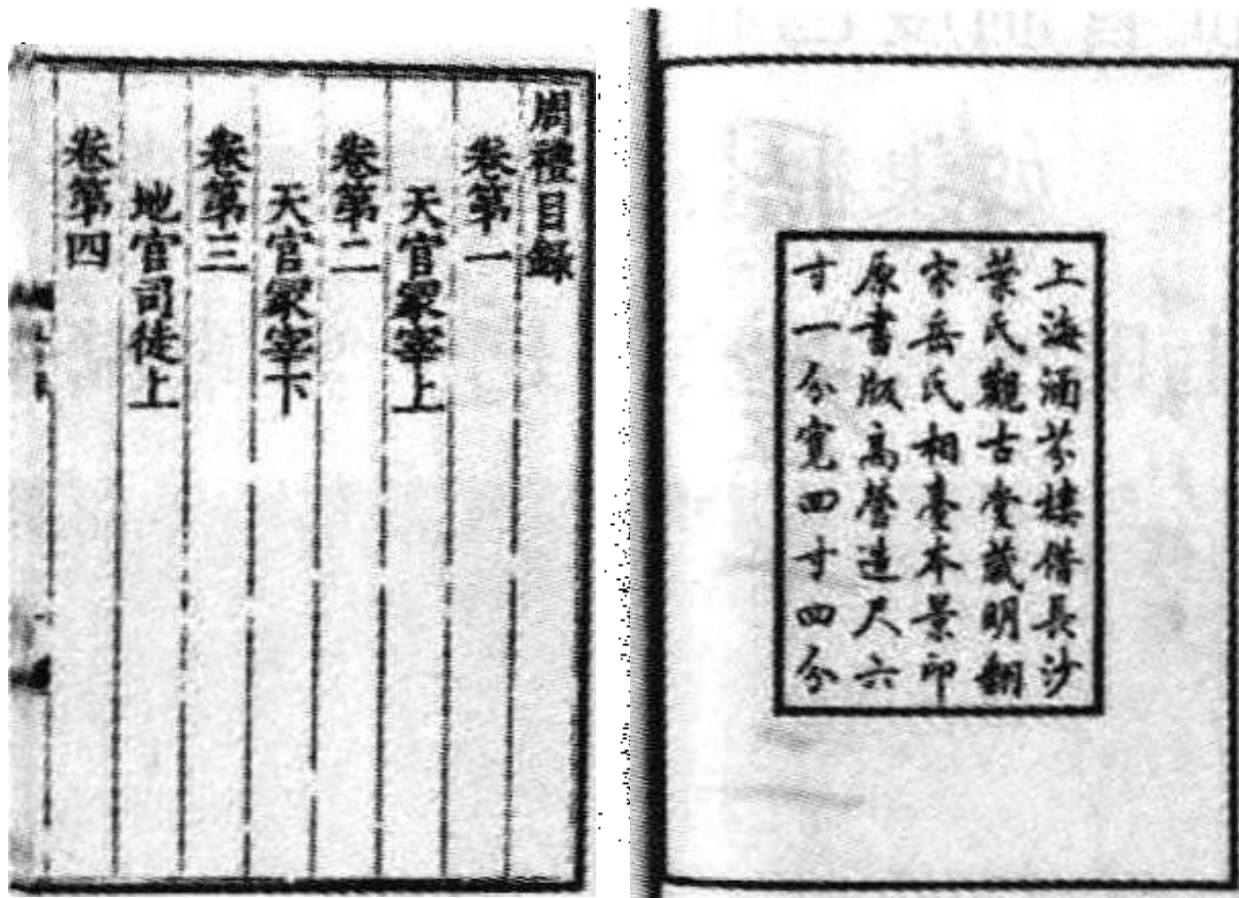 上海涵芬樓借長沙
葉氏觀古堂藏明翻
宋岳氏相臺本景印
原書版高營造尺六
寸一分寬四寸四分
周禮目錄
卷第一
天官冢宰上
卷第二
天官冢宰下
卷第三
地官司徒上
卷第四